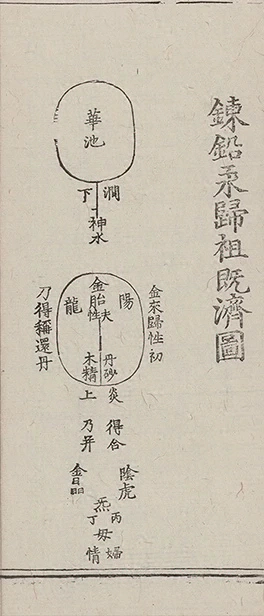 鍊鉛汞歸祖既濟圖
華池
澗下
神水
金來歸性初
乃得稱還丹
金胎
陽
龍
夫性
丹砂
木精
炎上
得合
乃昇
陰虎
金晶
炁
丙丁
母
婦情